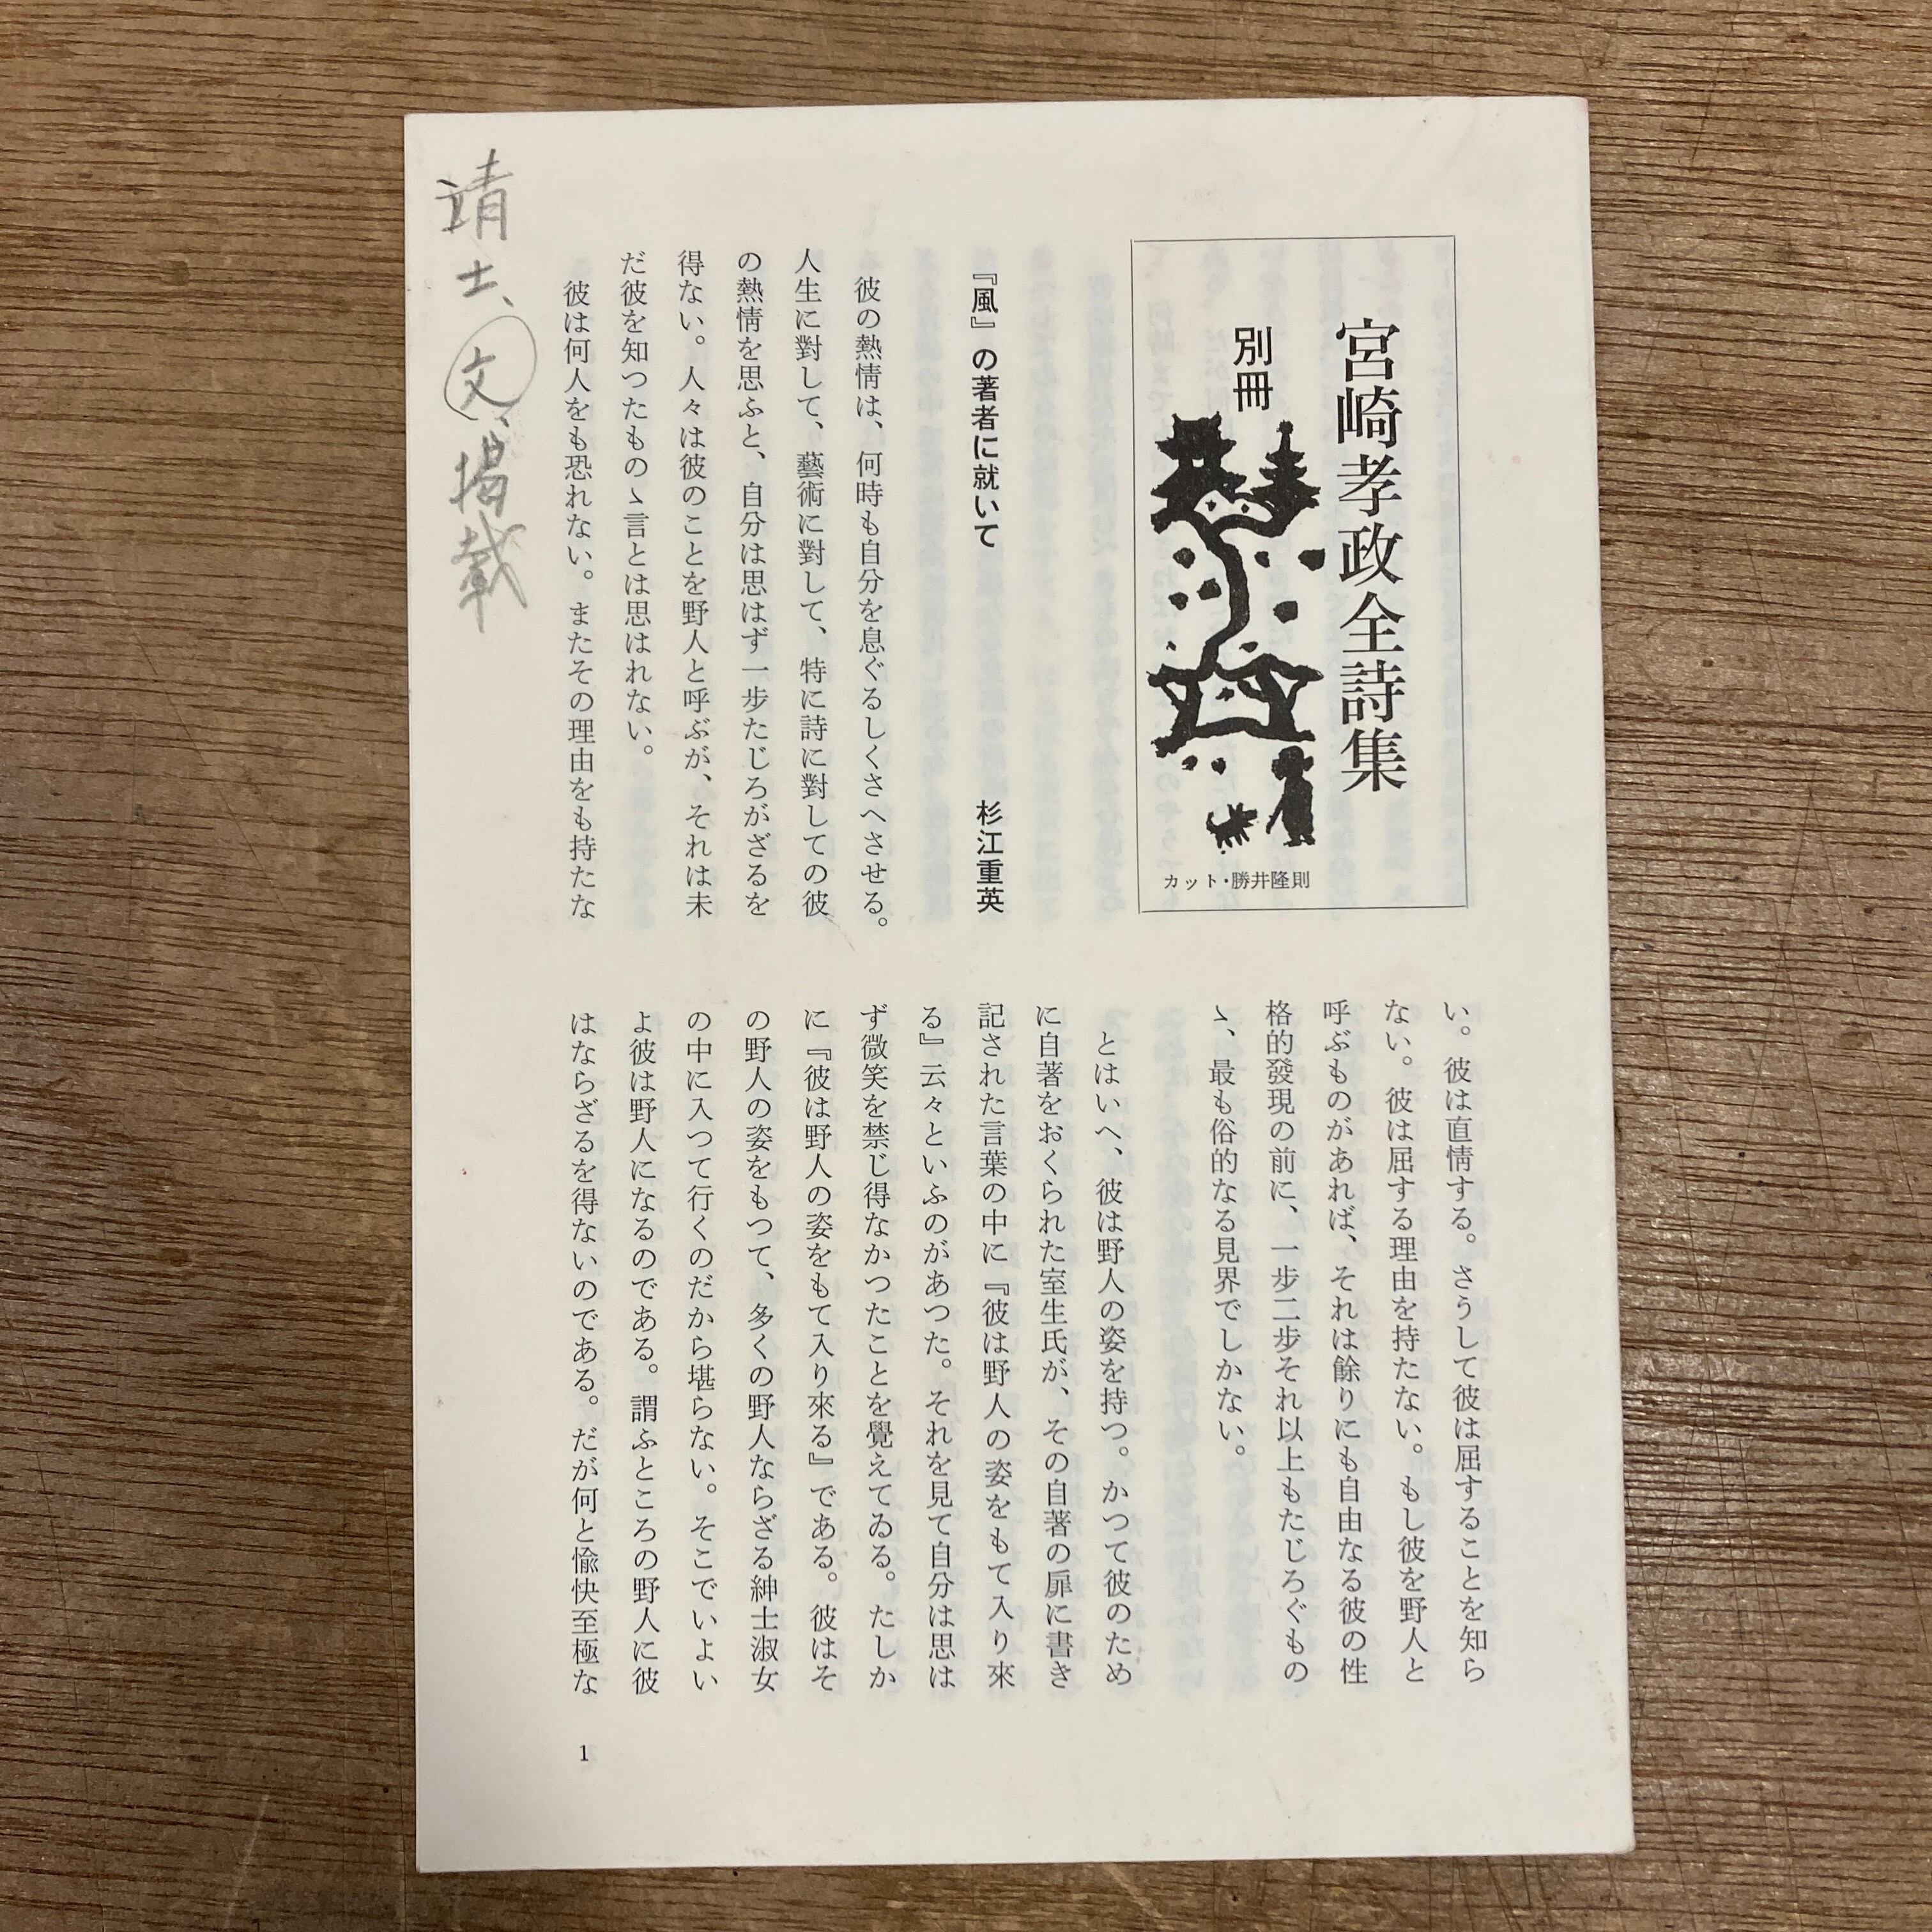 宮崎孝政全詩集
別冊
カット・勝井隆則
『風』の著者に就いて
杉江重英
彼の熱情は、何時も自分を息ぐるしくさへさせる。
人生に對して、藝術に對して、特に詩に對しての彼
の熱情を思ふと、自分は思はず一歩たじろがざるを
得ない。人々は彼のことを野人と呼ぶが、それは未
だ彼を知つたものゝ言とは思はれない。
彼は何人をも恐れない。またその理由をも持たな
い。彼は直情する。さうして彼は屈することを知ら
ない。彼は屈する理由を持たない。もし彼を野人と
呼ぶものがあれば、それは餘りにも自由なる彼の性
格的發現の前に、一歩二歩それ以上もたじろぐもの
ゝ、最も俗的なる見界でしかない。
とはいへ、彼は野人の姿を持つ。かつて彼のため
に自著をおくられた室生氏が、その自著の扉に書き
記された言葉の中に『彼は野人の姿をもて入り來
る』云々といふのがあつた。それを見て自分は思は
ず微笑を禁じ得なかつたことを覺えてゐる。たしか
に『彼は野人の姿をもて入り來る』である。彼はそ
の野人の姿をもつて、多くの野人ならざる紳士淑女
の中に入つて行くのだから堪らない。そこでいよい
よ彼は野人になるのである。謂ふところの野人に彼
はならざるを得ないのである。だが何と愉快至極な
1
靖士、文、掲載